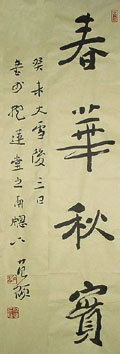 春華秋實
癸未大雪後三日
書於抱蓮堂之南窗下